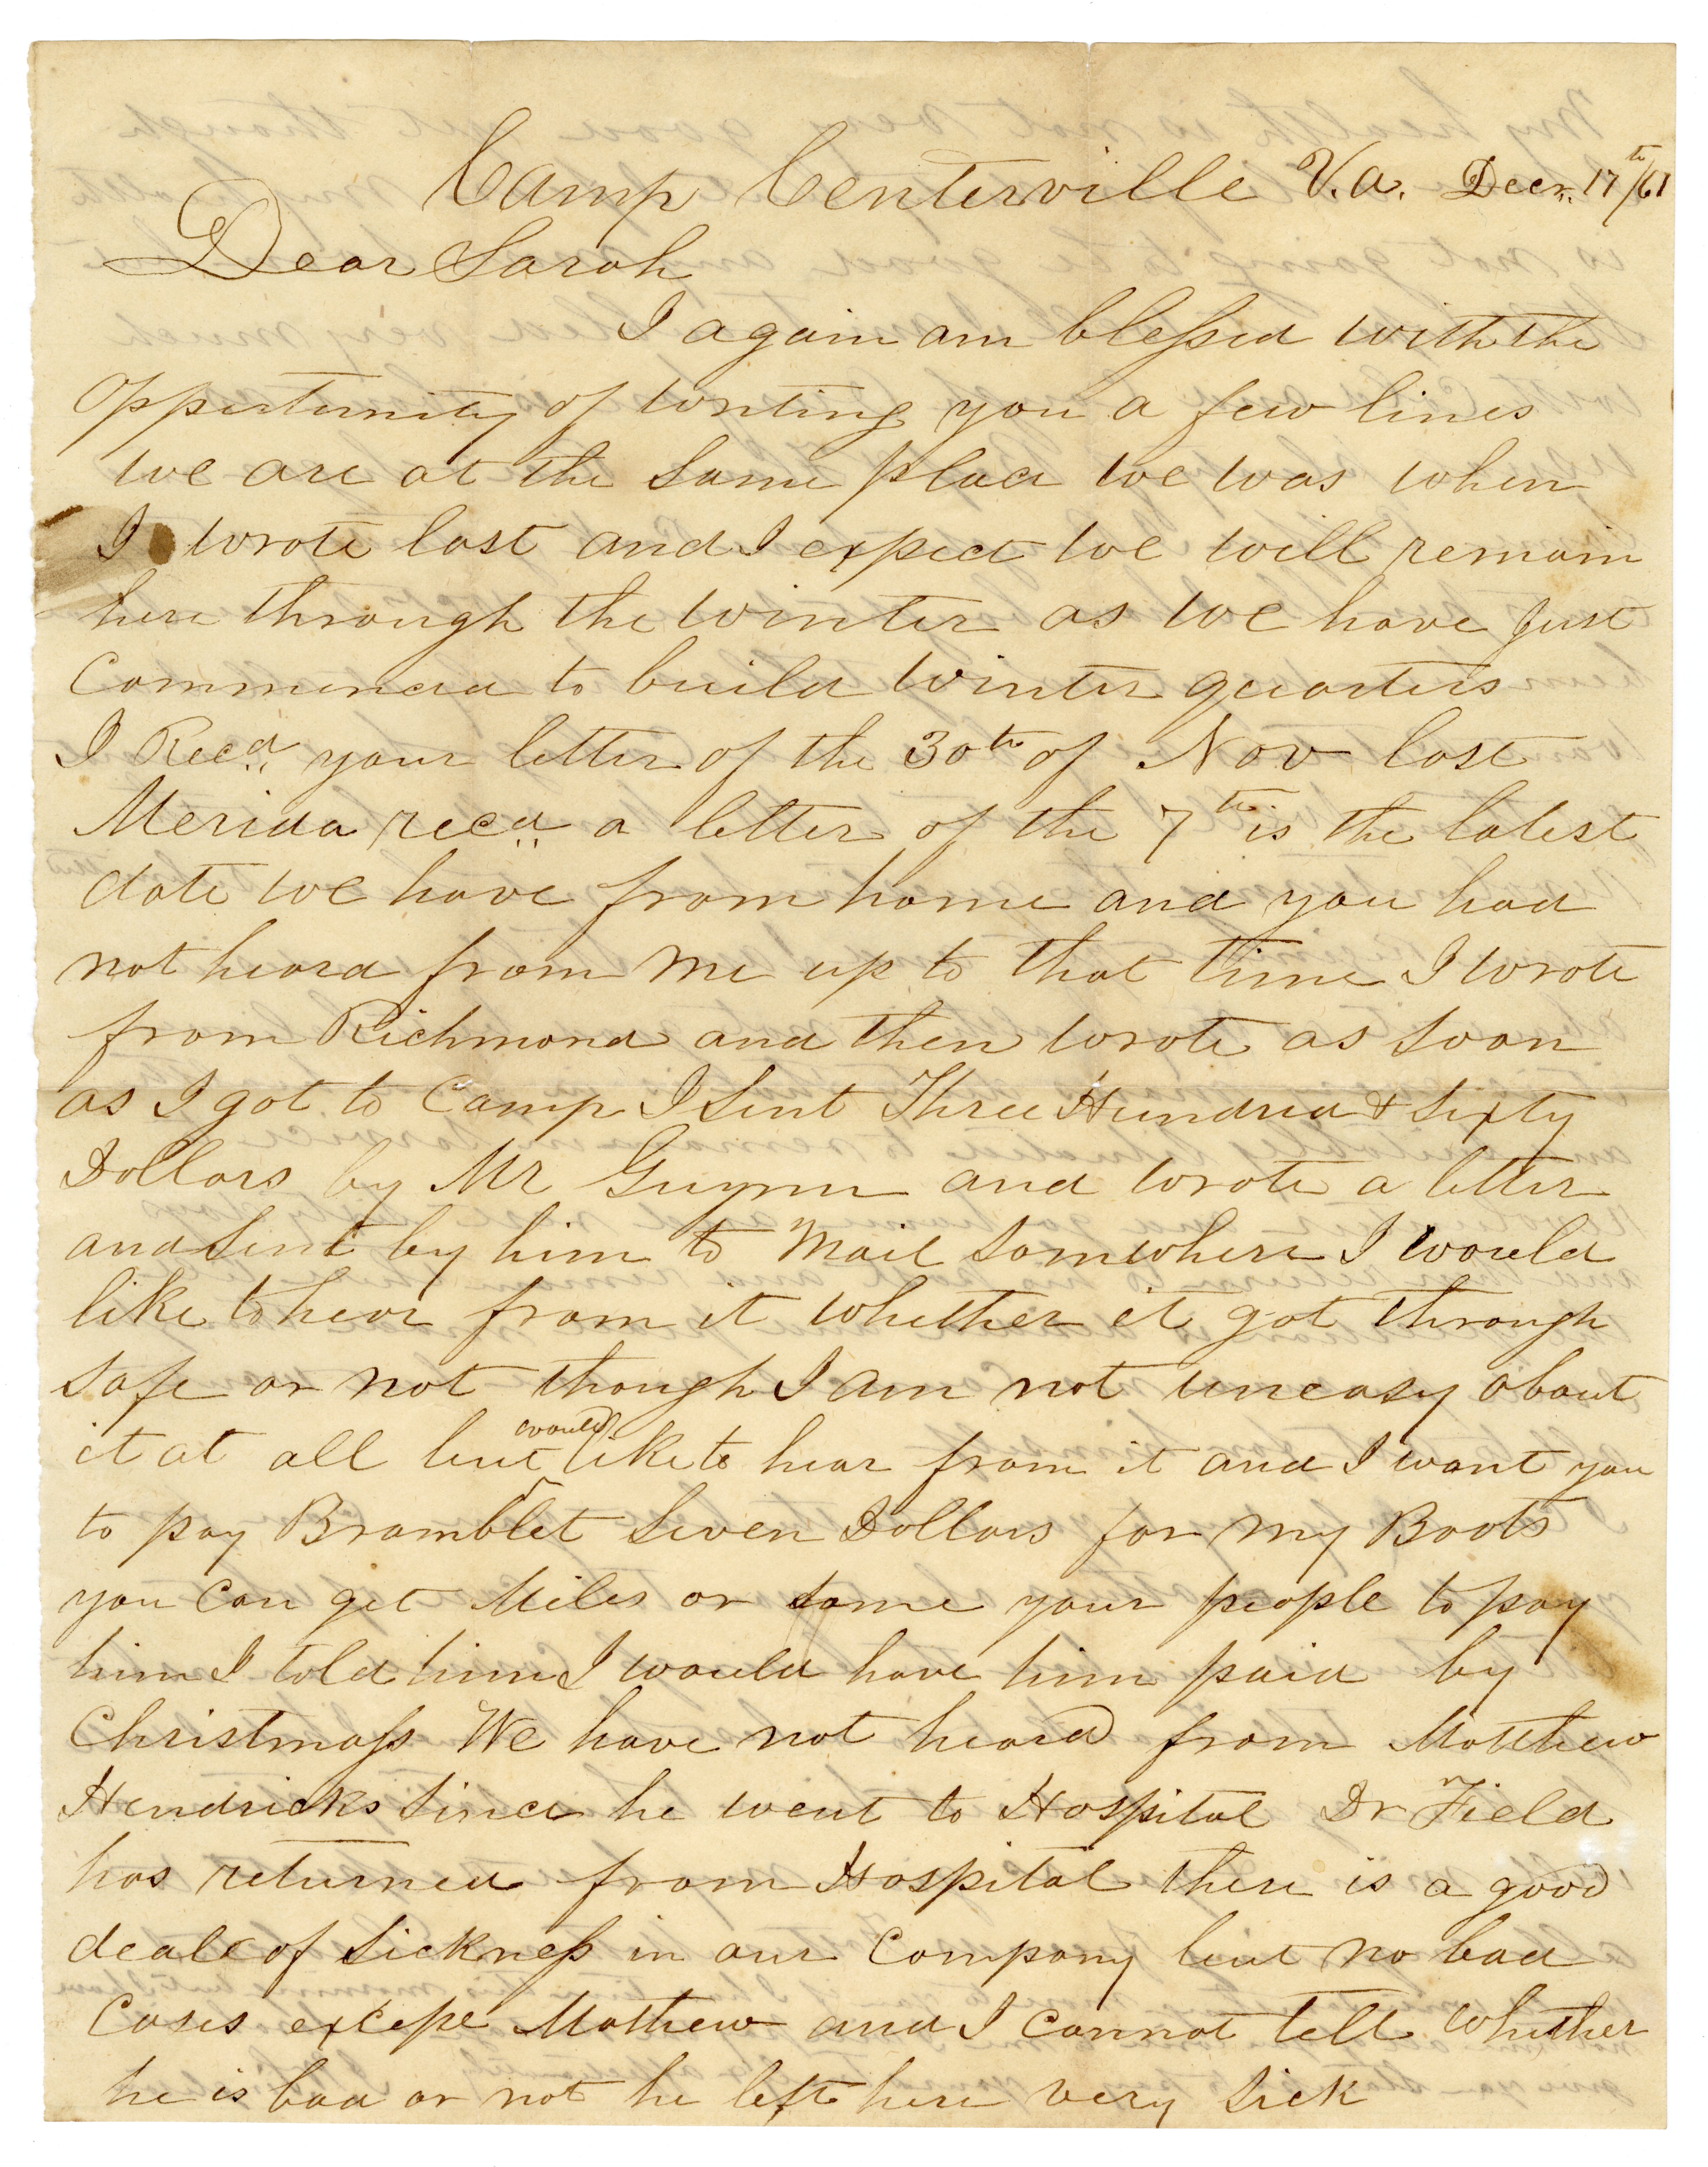 Camp Centerville V.a. Decr. 17th/61
Dear Sarah
I again am blessed with the
oppertunity of writing you a few lines
we are at the same place we was when
I wrote last and I expect we will remain
here through the winter as we have just
Commenced to build winter quarters
I Recd. your letter of the 30th of Nov last
Merida recd. a letter of the 7th is the latest
date we have from home and you had
not heard from me up to that time I wrote
from Richmond and then wrote as soon
as I got to Camp I sent Three Hundred & Sixty
Dollars by Mr Guynn and wrote a letter
and sent by him to Mail somwhere I would
like to hear from it whether it got through
safe or not though I am not uneasy about
it at all but would like to hear from it and I want you
to pay Bramblet Seven Dollars for my Boots
you can get Miles or some your people to pay
him I told him I would have him paid by
Christmass We have not heard from Matthew
Hendricks since he went to Hospital Dr Field
has returned from Hospital there is a good
deale of sickness in our Company but no bad
Cases excepe Mathew and I cannot tell whether
he is bad or not he left here very sick